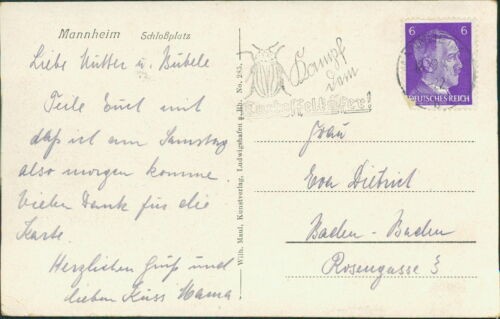 Mannheim Schloßplatz
Liebe Mutter u. Bübele
Teile Euch mit
daß ich am Samstag
also morgen komme.
Vielen Dank für die
Karte.
Herzlichen Gruß und
lieben Kuss Mama
Wilh. Maul, Kunstverlag, Ludwigshafen a. Rh. No. 285.
Kampf
dem
Kartoffelkäfer!
6 6
DEUTSCHES REICH
Frau
Eva Dietrich
Baden-Baden
Rosengasse 3